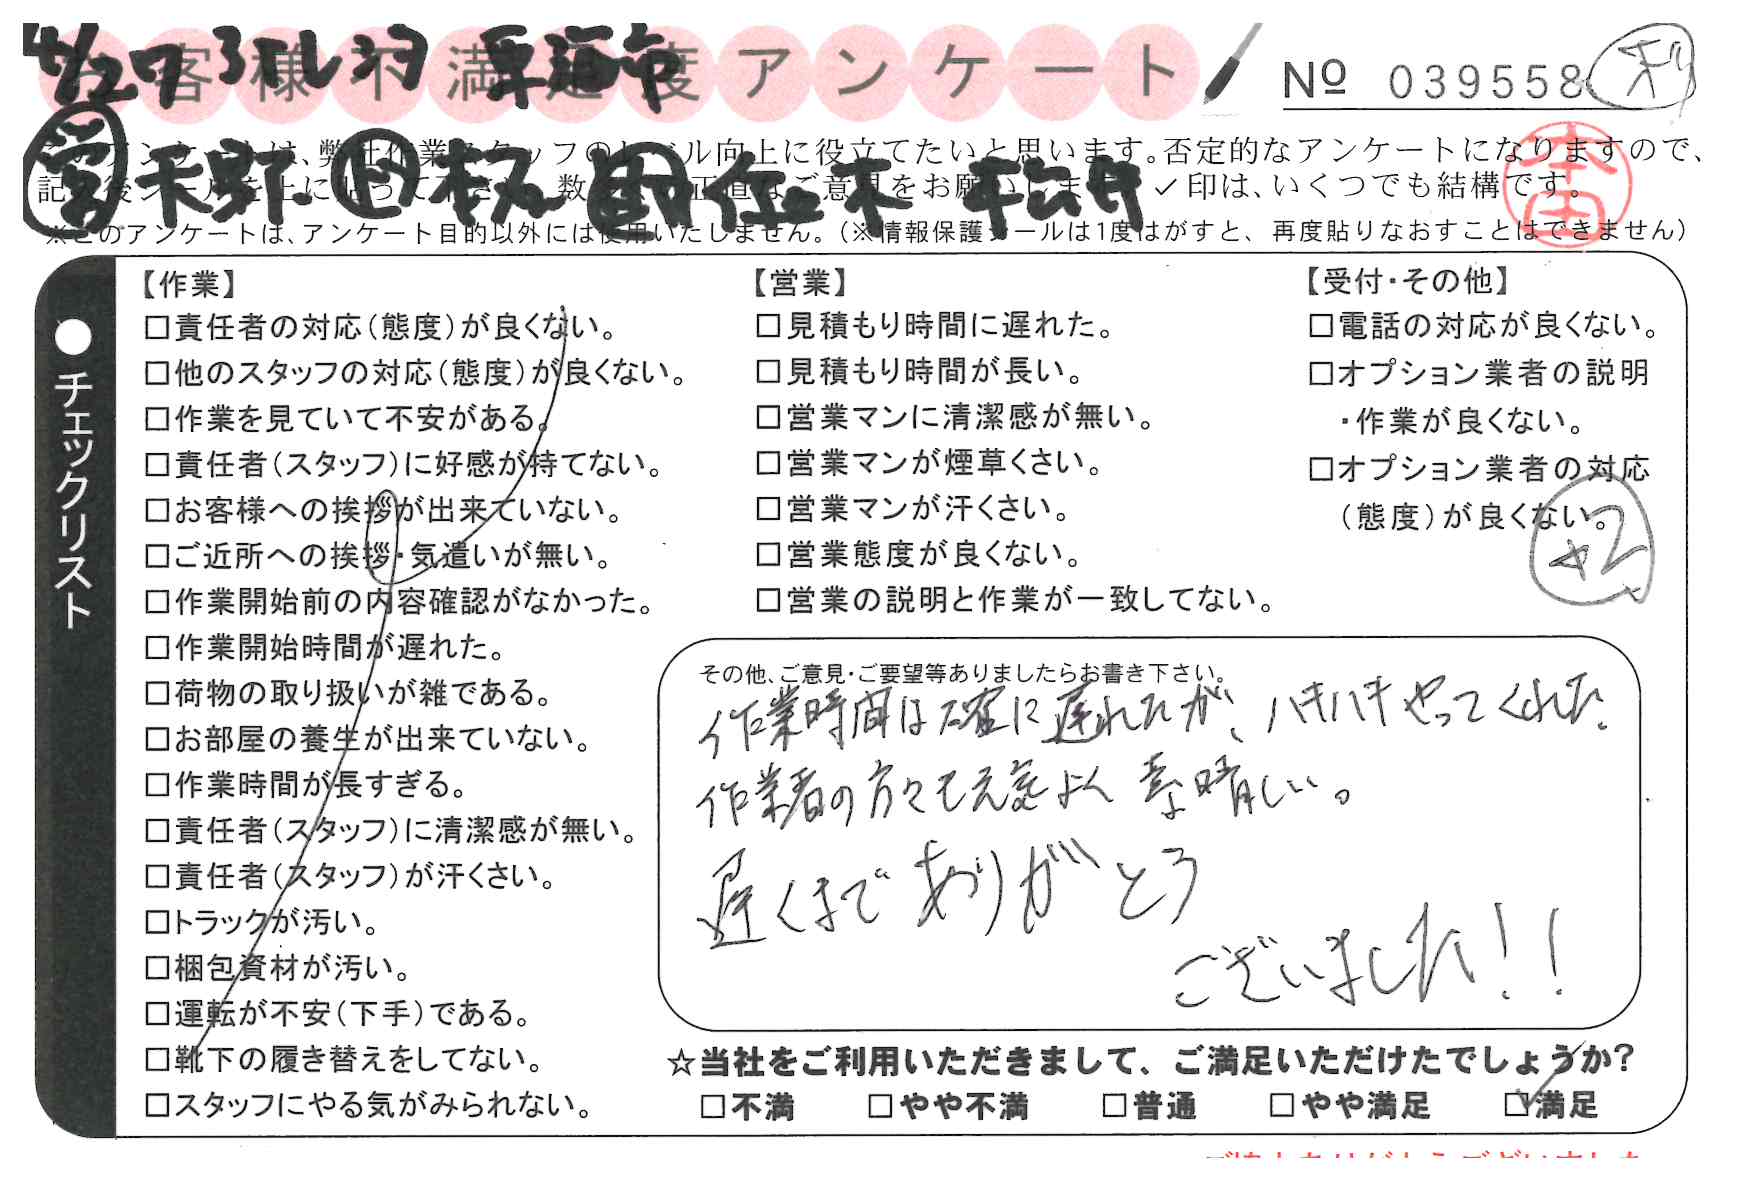 お客様不満足度アンケート
№ 039558
4/27
草加市
このアンケートは、弊社作業スタッフのレベル向上に役立てたいと思います。否定的なアンケートになりますので、
正直なご意見をお願いします ✓印は、いくつでも結構です。
営 日 佐々木 平松
本田
※このアンケートは、アンケート目的以外には使用いたしません。(※情報保護シールは1度はがすと、再度貼りなおすことはできません)
●チェックリスト
【作業】
□責任者の対応(態度)が良くない。
□他のスタッフの対応(態度)が良くない。
□作業を見ていて不安がある。
□責任者(スタッフ)に好感が持てない。
□お客様への挨拶が出来ていない。
□ご近所への挨拶・気遣いが無い。
□作業開始前の内容確認がなかった。
□作業開始時間が遅れた。
□荷物の取り扱いが雑である。
□お部屋の養生が出来ていない。
□作業時間が長すぎる。
□責任者(スタッフ)に清潔感が無い。
□責任者(スタッフ)が汗くさい。
□トラックが汚い。
□梱包資材が汚い。
□運転が不安(下手)である。
□靴下の履き替えをしてない。
□スタッフにやる気がみられない。
【営業】
□見積もり時間に遅れた。
□見積もり時間が長い。
□営業マンに清潔感が無い。
□営業マンが煙草くさい。
□営業マンが汗くさい。
□営業態度が良くない。
□営業の説明と作業が一致してない。
【受付・その他】
□電話の対応が良くない。
□オプション業者の説明
・作業が良くない。
□オプション業者の対応
(態度)が良くない。
+2
その他、ご意見・ご要望等ありましたらお書き下さい。
作業時間は確に遅れたが、ハキハキやってくれた。
作業者の方々も元気よく素晴しい。
遅くまでありがとう
ございました!!
☆当社をご利用いただきまして、ご満足いただけたでしょうか?
□不満 □やや不満 □普通 □やや満足 ☑満足
ご協力ありがとうございました